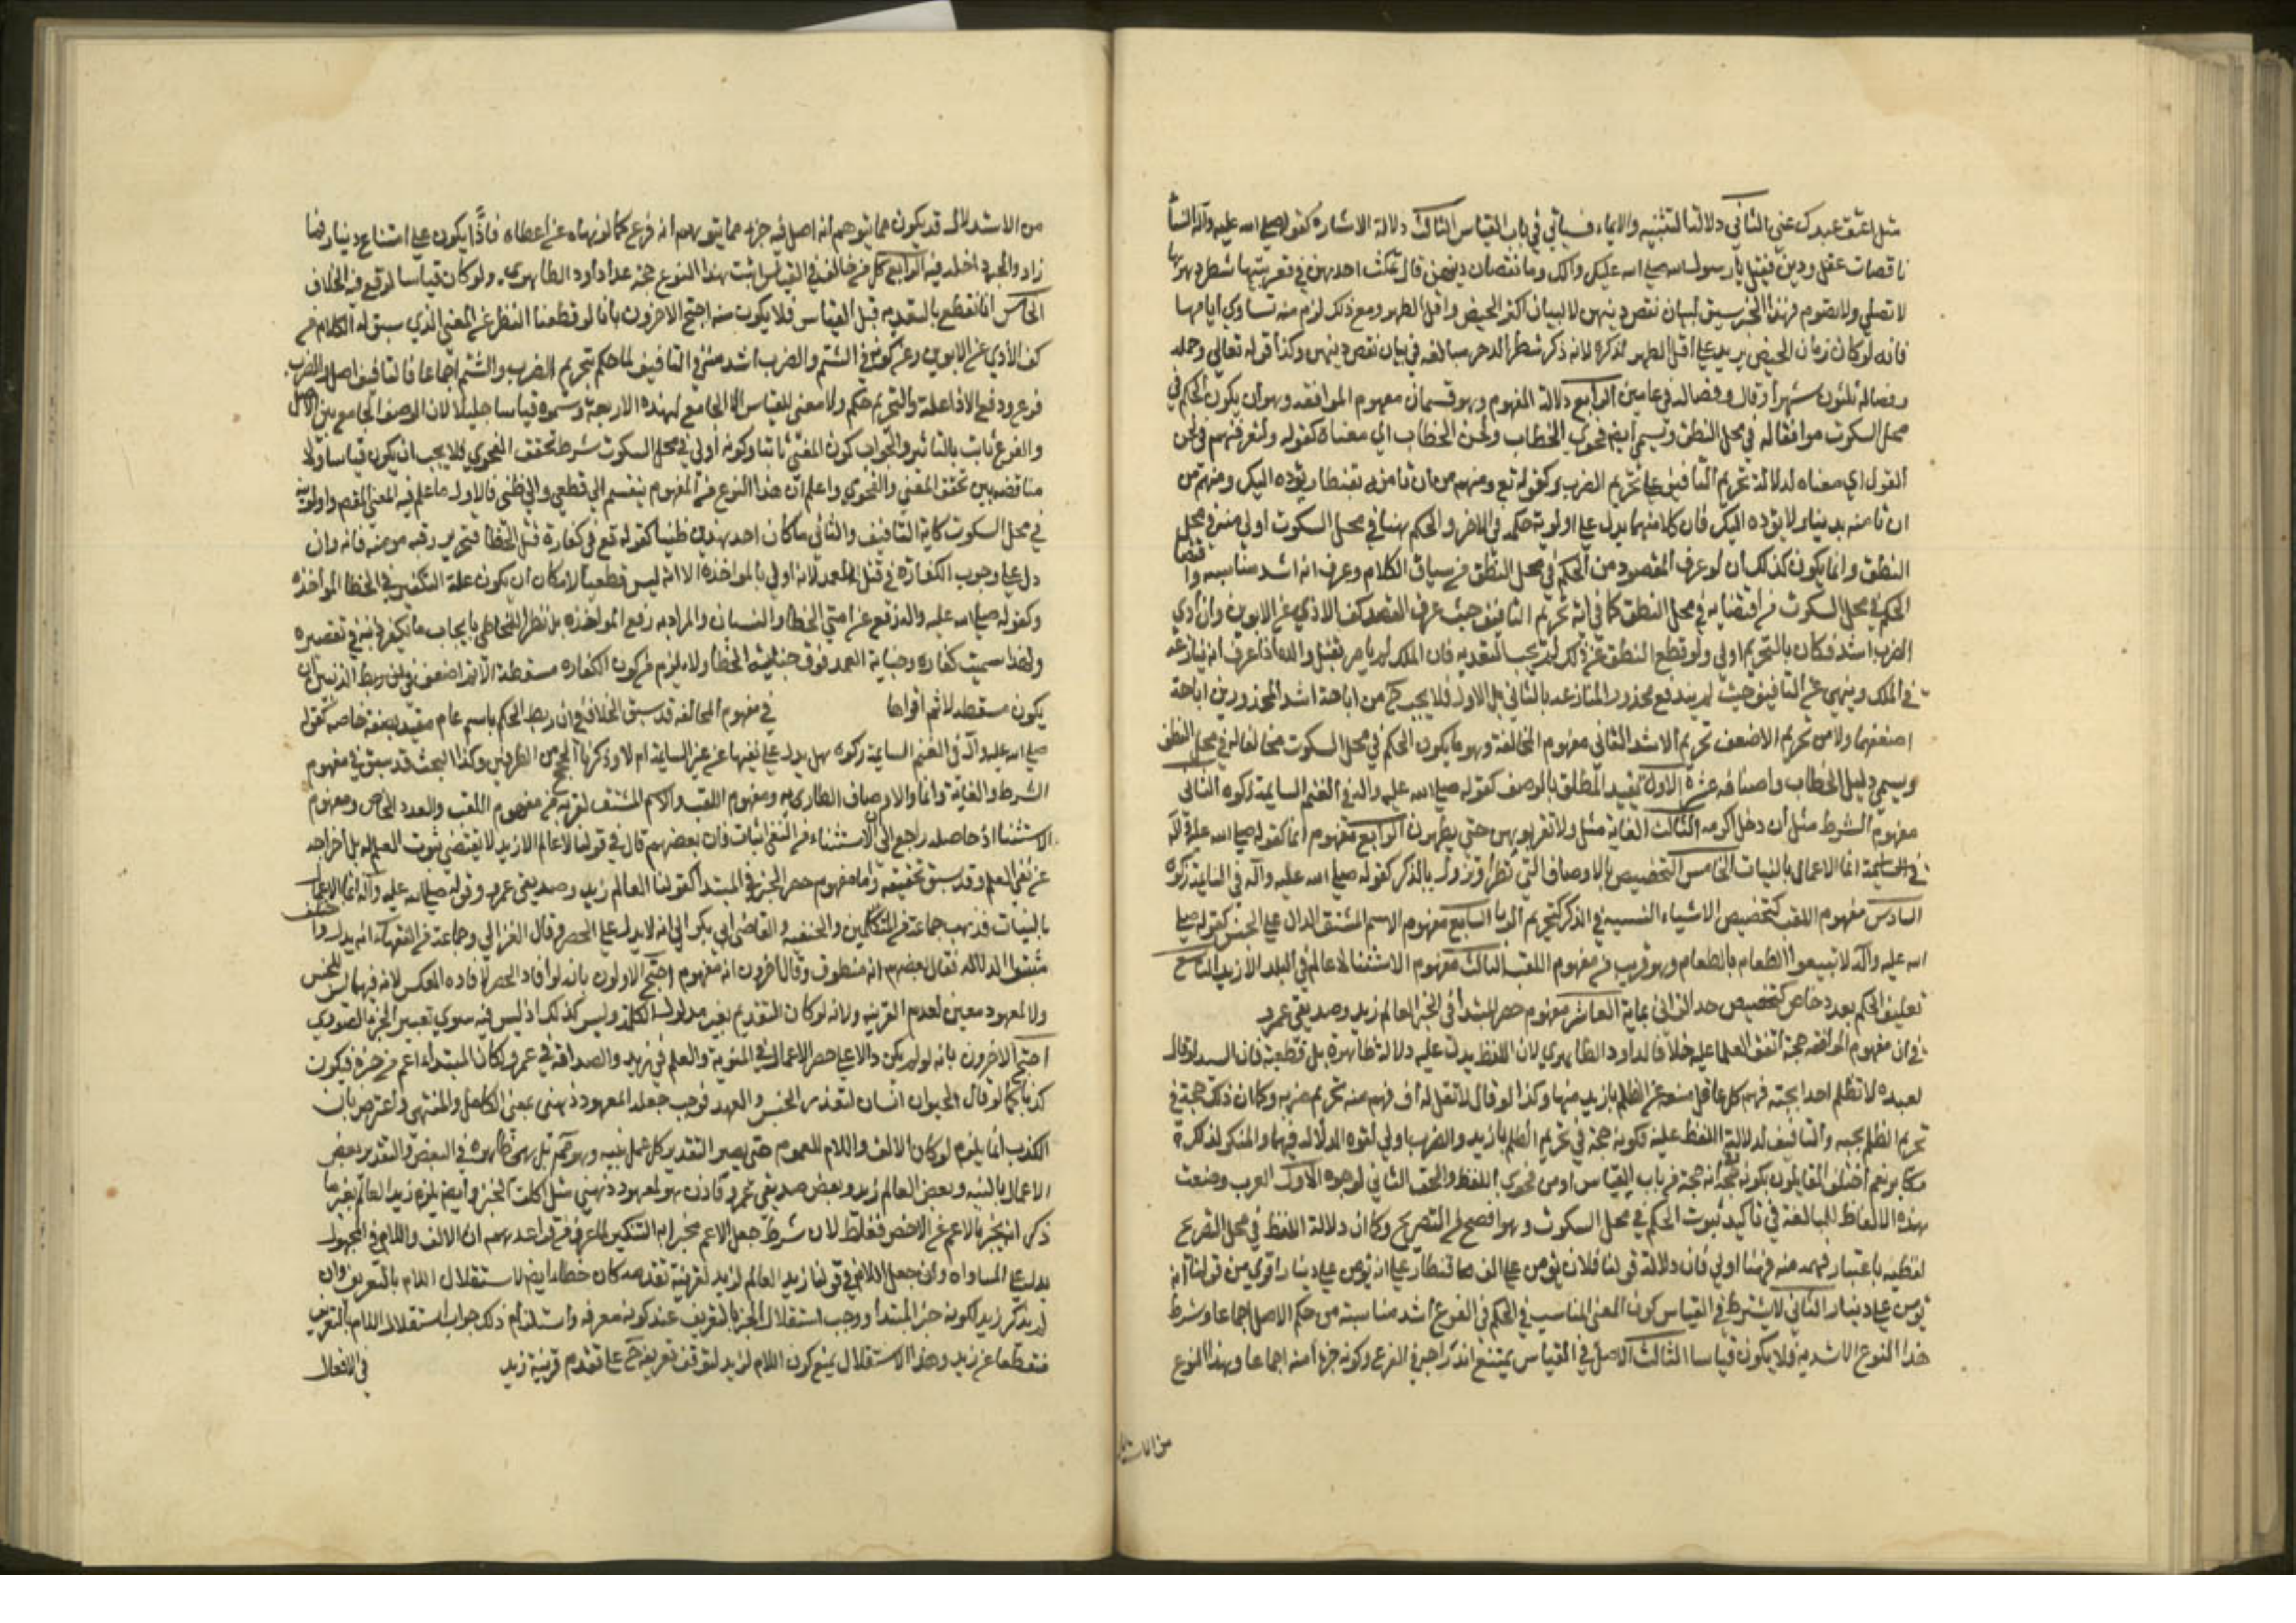 مثل اعتق عبدك عني الثاني دلالة التنبيه والايماء فسياتي في باب القياس الثالث دلالة الاشارة كقوله صلى الله عليه وآله النساء
ناقصات عقل ودين فقيل يا رسول الله صلى الله عليك وآلك وما نقصان دينهن قال تمكث احديهن في قعر بيتها شطر دهرها
لا تصلي ولا تصوم فهذا الخبر سيق لبيان نقص دينهن لا لبيان اكثر الحيض واقل الطهر ومع ذلك لزم منه تساوي ايامهما
فانه لو كان زمان الحيض يزيد على اقل الطهر لذكره لانه ذكر شطر الدهر مبالغة في بيان نقص دينهن وكذا قوله تعالى وحمله
وفصاله ثلثون شهرا وقال وفصاله في عامين الرابع دلالة المفهوم وهو قسمان مفهوم الموافقة وهو ان يكون الحكم في
محل السكوت موافقا له في محل النطق ويسمى ايضا فحوى الخطاب ولحن الخطاب اي معناه كقوله ولتعرفنهم في لحن
القول اي معناه لدلالة تحريم التافيف على تحريم الضرب وكقوله تع ومنهم من ان تامنه بقنطار يؤده اليك ومنهم من
ان تامنه بدينار لا يؤده اليك فان كلا منهما يدل على اولوية حكمه في الاخر والحكم ههنا في محل السكوت اولى منه في محل
النطق وانما يكون كذلك ان لو عرف المقصود من الحكم في محل النطق من سياق الكلام وعرف انه اشد مناسبة واقتضاء
الحكم في محل السكوت من اقتضايه في محل النطق كما في آية تحريم التافيف حيث عرف القصد كف الاذى عن الابوين وان اذى
الضرب اشد فكان بالتحريم اولى ولو قطع النطق عن ذلك لم يجب التعدية فان الملك لو يامر بقتل والده اذا عرف انه ينازعه
في الملك وينهى عن التافيف حيث لم يندفع محذور المنازعة بالثاني بل الاول فلا يجب ح من اباحة اشد المحذورين اباحة
اضعفهما ولا من تحريم الاضعف تحريم الاشد الثاني مفهوم المخالفة وهو ما يكون الحكم في محل السكوت مخالفا له في محل النطق
ويسمى دليل الخطاب واصنافه عشرة الاول تقييد المطلق بالوصف كقوله صلى الله عليه واله في الغنم السايمة زكوة الثاني
مفهوم الشرط مثل ان دخل اكرمه الثالث الغاية مثل ولا تقربوهن حتى يطهرن الرابع مفهوم انما كقوله صلى الله عليه وآله
انما الاعمال بالنيات الخامس التخصيص بالاوصاف التي تطرأ وتزول بالذكر كقوله صلى الله عليه وآله في السايمة زكوة
السادس مفهوم اللقب كتخصيص الاشياء الستة في الذكر كتحريم الربا السابع مفهوم الاسم المشتق الدال على الجنس كقوله صلى
الله عليه وآله لا تبيعوا الطعام بالطعام وهو قريب من مفهوم اللقب الثامن مفهوم الاستثناء لا عالم في البلد الا زيد التاسع
تعليق الحكم بعدد خاص كتخصيص حد الزاني بماية العاشر مفهوم حصر المبتدا في الخبر العالم زيد وصديقي عمرو
في ان مفهوم الموافقة حجة اتفق العلما عليه خلافا لداود الظاهري لان اللفظ يدل عليه دلالة ظاهرة بل قطعية فان السيد لو قال
لعبده لا تظلم احدا بحبة فهم كل عاقل منعه عن الظلم بازيد منها وكذا لو قال لا تقل له اف فهم منه تحريم ضربه وكان ذلك حجة في
تحريم الظلم بحبة والتافيف لدلالة اللفظ عليه فكونه حجة في تحريم الظلم بازيد والضرب اولى لقوة الدلالة فيهما والمنكر لذلك
مكابر نعم اختلف القايلون بكونه حجة انه حجة من باب القياس او من فحوى اللفظ والحق الثاني لوجوه الاول العرب وضعت
هذه الالفاظ للمبالغة في تاكيد ثبوت الحكم في محل السكوت وهو افصح من التصريح وكان دلالة اللفظ في محل التصريح
لفظية باعتبار فهمه منه فهنا اولى فان دلالة قولنا فلان يؤمن على الف قنطار على انه يؤمن على دينار اقوى من قولنا انه
يؤمن على دينار الثاني لا يشترط في القياس كون المعنى المناسب في الحكم في الفرع اشد مناسبة من حكم الاصل اجماعا وشرط
هذا النوع الاشدية فلا يكون قياسا الثالث الاصل في القياس يمتنع اندراجه في الفرع وكونه جزءا منه اجماعا وبهذا النوع
من الاستدلال
من الاستدلال قد يكون ما يتوهم انه اصل فيه جزء مما يتوهم انه فرع كما لو نهاه عن اعطاه فاذا يكون على امتناع دينار فما
زاد والجرد اخله فيه الرابع كل من خالف في القياس اثبت بهذا النوع حجة عدا داود الظاهري ولو كان قياسا لوقع فيه الخلاف
الخامس انا نقطع بالتعدية قبل القياس فلا يكون منه احتج الاخرون بانا لو قطعنا النظر عن المعنى الذي سبق له الكلام من
كف الاذى عن الابوين وعن كونه في الشتم والضرب اشد منه في التافيف لما حكم بتحريم الضرب والشتم اجماعا فالتافيف اصل والضرب
فرع ودفع الاذى علة والتحريم حكم ولا معنى للقياس الا الجامع لهذه الاربعة وسموه قياسا جليا لان الوصف الجامع بين الاصل
والفرع ثابت بالتاثير والجواب كون المعنى ثابتا وكونه اولى في محل السكوت شرط تحقق الفحوى فلا يجب ان يكون قياسا ولا
مناقضة بين تحقق المعنى والفحوى واعلم ان هذا النوع من المفهوم ينقسم الى قطعي والى ظني فالاول ما علم فيه المعنى المقصود واولويته
في محل السكوت كاية التافيف والثاني ما كان احد هذين ظنيا كقوله تع في كفارة قتل الخطأ فتحرير رقبة مومنة فانه وان
دل على وجوب الكفارة في قتل العمد لانه اولى بالمواخذة الا انه ليس قطعيا لامكان ان يكون علة التكفير في الخطأ الموأخذه
وكقوله صلى الله عليه واله رفع عن امتي الخطا والنسيان والمراد به رفع المواخذة بل نظر للخاطي بايجاب ما يكفر ذنبه في تقصيره
ولهذا سميت كفارة وجناية العمد فوق جناية الخطأ ولا يلزم من كون الكفاره مسقطة لاثم اضعف الذنبين ان
يكون مسقطة لاثم اقواها في مفهوم المخالفة قد سبق الخلاف في ان ربط الحكم باسم عام مقيد بصفة خاصة كقوله
صلى الله عليه وآله في الغنم السايمة زكوة هل يدل على نفيها عن غير السايمة ام لا وذكرنا الحجج من الطرفين وكذا البحث قد سبق في مفهوم
الشرط والغاية وانما والاوصاف الطارية ومفهوم اللقب والاسم المشتق لقربه من مفهوم اللقب والعدد الخاص ومفهوم
الاستثنا اذ حاصله راجع الى الاستثناء من النفي اثبات فان بعضهم قال في قولنا لا عالم الا زيد لا يقتضي ثبوت العلم له بل اخراجه
عن نفي العلم وقد سبق تحقيقه واما مفهوم حصر الخبر في المبتدا كقولنا العالم زيد وصديقي عمرو وقوله صلى الله عليه وآله انما الاعمال
بالنيات فذهب جماعة من المتكلمين والحنفية والقاضي ابي بكر الى انه لا يدل على الحصر وقال الغزالي وجماعة من الفقهاء انه يدل واختلف
مثبتوا الدلالة فقال بعضهم انه منطوق وقال اخرون انه مفهوم احتج الاولون بانه لو افاد الحصر لافاده العكس لانه فيهما ليس للجنس
ولا لمعهود معين لعدم القرينة ولانه لو كان التقديم يغير مدلول الكلمة وليس كذلك اذ ليس فيه سوى تغيير الجزء الصوري
احتج الاخرون بانه لو لم يكن دالا على حصر الاعمال في المنوية والعلم في زيد والصداقة في عمرو لكان المبتداء اعم من خبره فيكون
كذبا كما لو قال الحيوان انسان لتعذر الجنس والعهد فوجب جعله لمعهود ذهني بمعنى الكامل والمنتهى واعترض بان
الكذب انما يلزم لو كان الالف واللام للعموم حتى يصير التقدير كل عمل بنية وهو مم بل هي ظاهرة في البعض والتقدير بعض
الاعمال بالنية وبعض العالم زيد وبعض صديقي عمرو فاذن هو لمعهود ذهني مثل اكلت الخبز وايض يلزم زيد العالم بغير ما
ذكر انه يخبر بالاعم عن الاخص فغلط لان شرط جعل الاعم مخبرا به التنكير
يدل على المساواة وان جعل اللام في قولنا زيد العالم لزيد لقرينة تقدمه كان خطأ ايضا لاستقلال اللام بالتعريف وان
لم يذكر زيد لكونه خبر المبتدأ ووجب استقلال الخبر بالتعريف عند كونه معرفة
منقطعا عن زيد وهذا الاستقلال يمنع كون اللام لزيد لتوقف تعريفه ح على تقدم قرينة زيد في الافعال